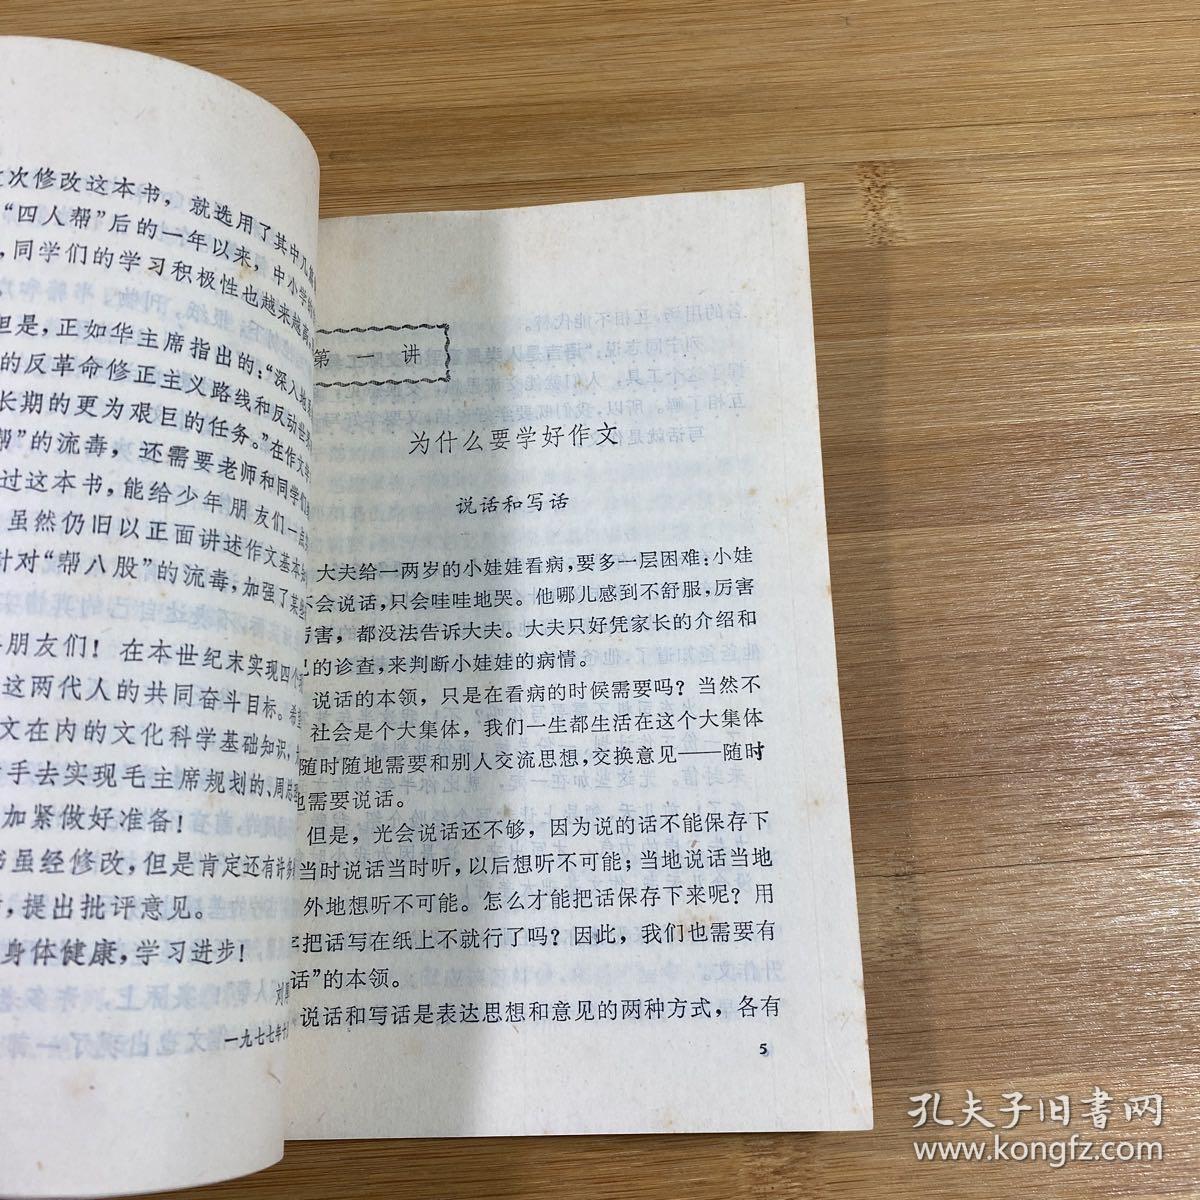 次修改这本书，就选用了其中几篇
“四人帮”后的一年以来，中小学的
，同学们的学习积极性也越来越高，
但是，正如华主席指出的：“深入地
的反革命修正主义路线和反动
长期的更为艰巨的任务。”在作文
帮”的流毒，还需要老师和同学们
过这本书，能给少年朋友们一点
虽然仍旧以正面讲述作文基本
针对“帮八股”的流毒，加强了某些
朋友们！在本世纪末实现四个
这两代人的共同奋斗目标。希望
文在内的文化科学基础知识，
手去实现毛主席规划的、周总理
加紧做好准备！
书虽经修改，但是肯定还有许多
，提出批评意见。
身体健康，学习进步！
刘
一九七七年十
第一讲
为什么要学好作文
说话和写话
大夫给一两岁的小娃娃看病，要多一层困难：小娃
不会说话，只会哇哇地哭。他哪儿感到不舒服，厉害
厉害，都没法告诉大夫。大夫只好凭家长的介绍和
己的诊查，来判断小娃娃的病情。
说话的本领，只是在看病的时候需要吗？当然不
社会是个大集体，我们一生都生活在这个大集体
随时随地需要和别人交流思想，交换意见——随时
地需要说话。
但是，光会说话还不够，因为说的话不能保存下
当时说话当时听，以后想听不可能；当地说话当地
外地想听不可能。怎么才能把话保存下来呢？用
字把话写在纸上不就行了吗？因此，我们也需要有
话”的本领。
说话和写话是表达思想和意见的两种方式，各有
5
孔夫子旧书网
www.kongfz.com